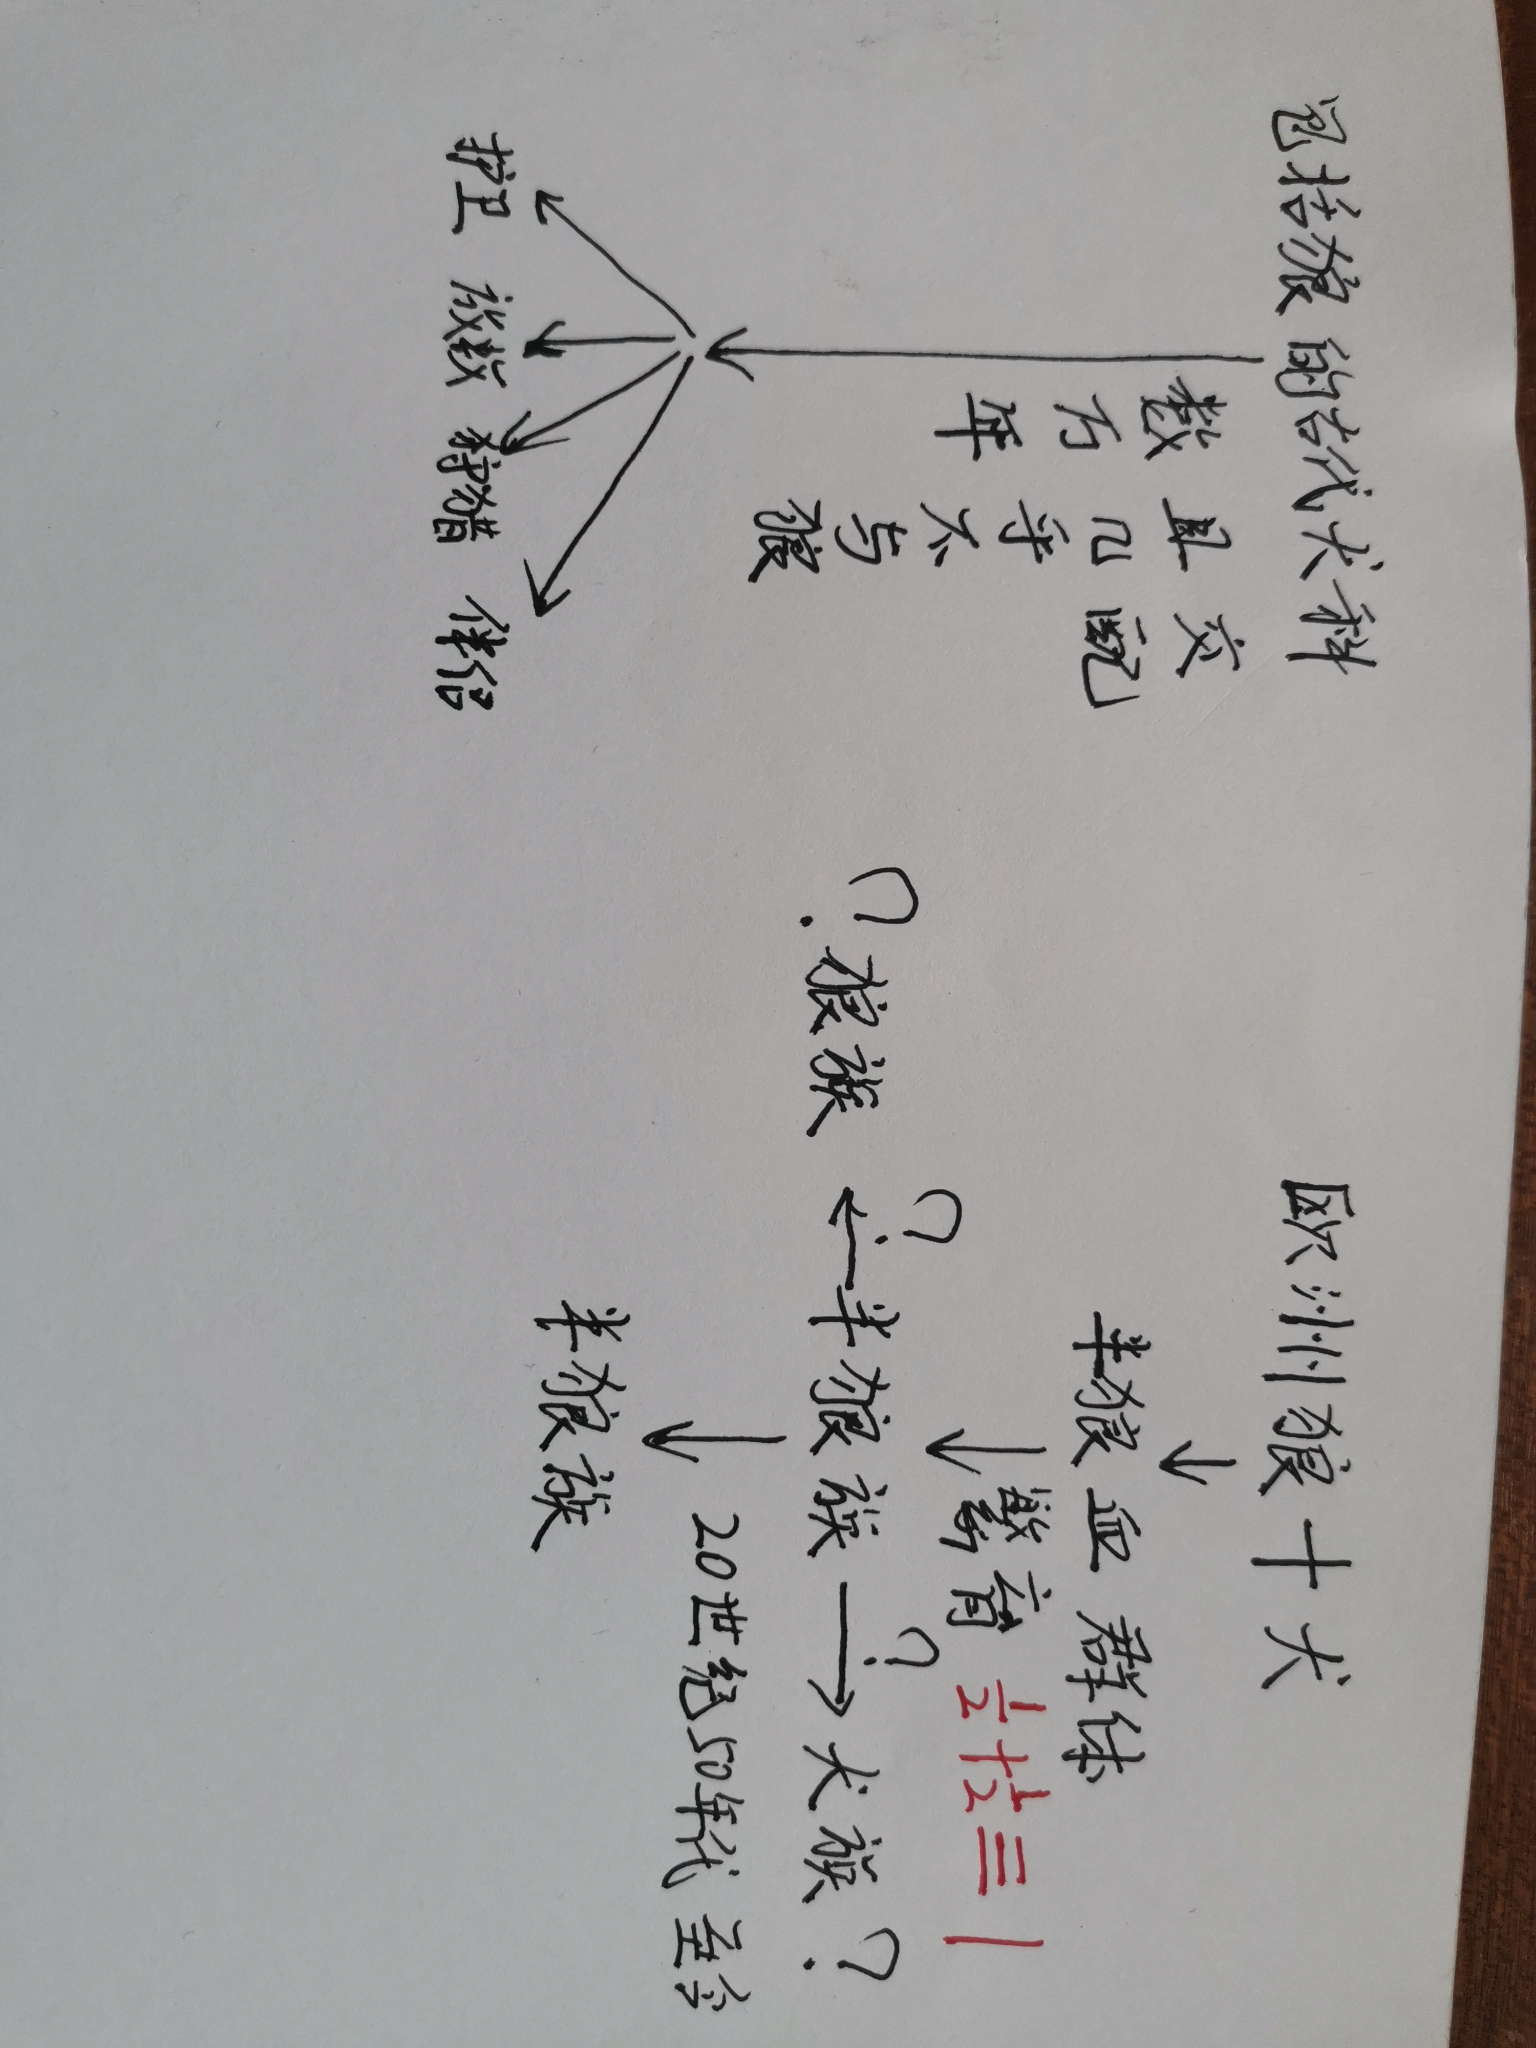 包括狼的古代犬科
数万年
且几乎不与狼
交配
护卫 放牧 狩猎 伴侣
欧洲狼+犬
半狼血群体
繁育 ½+½≡1
?狼族 ? 半狼族 ? 犬族?
20世纪50年代至今
半狼族